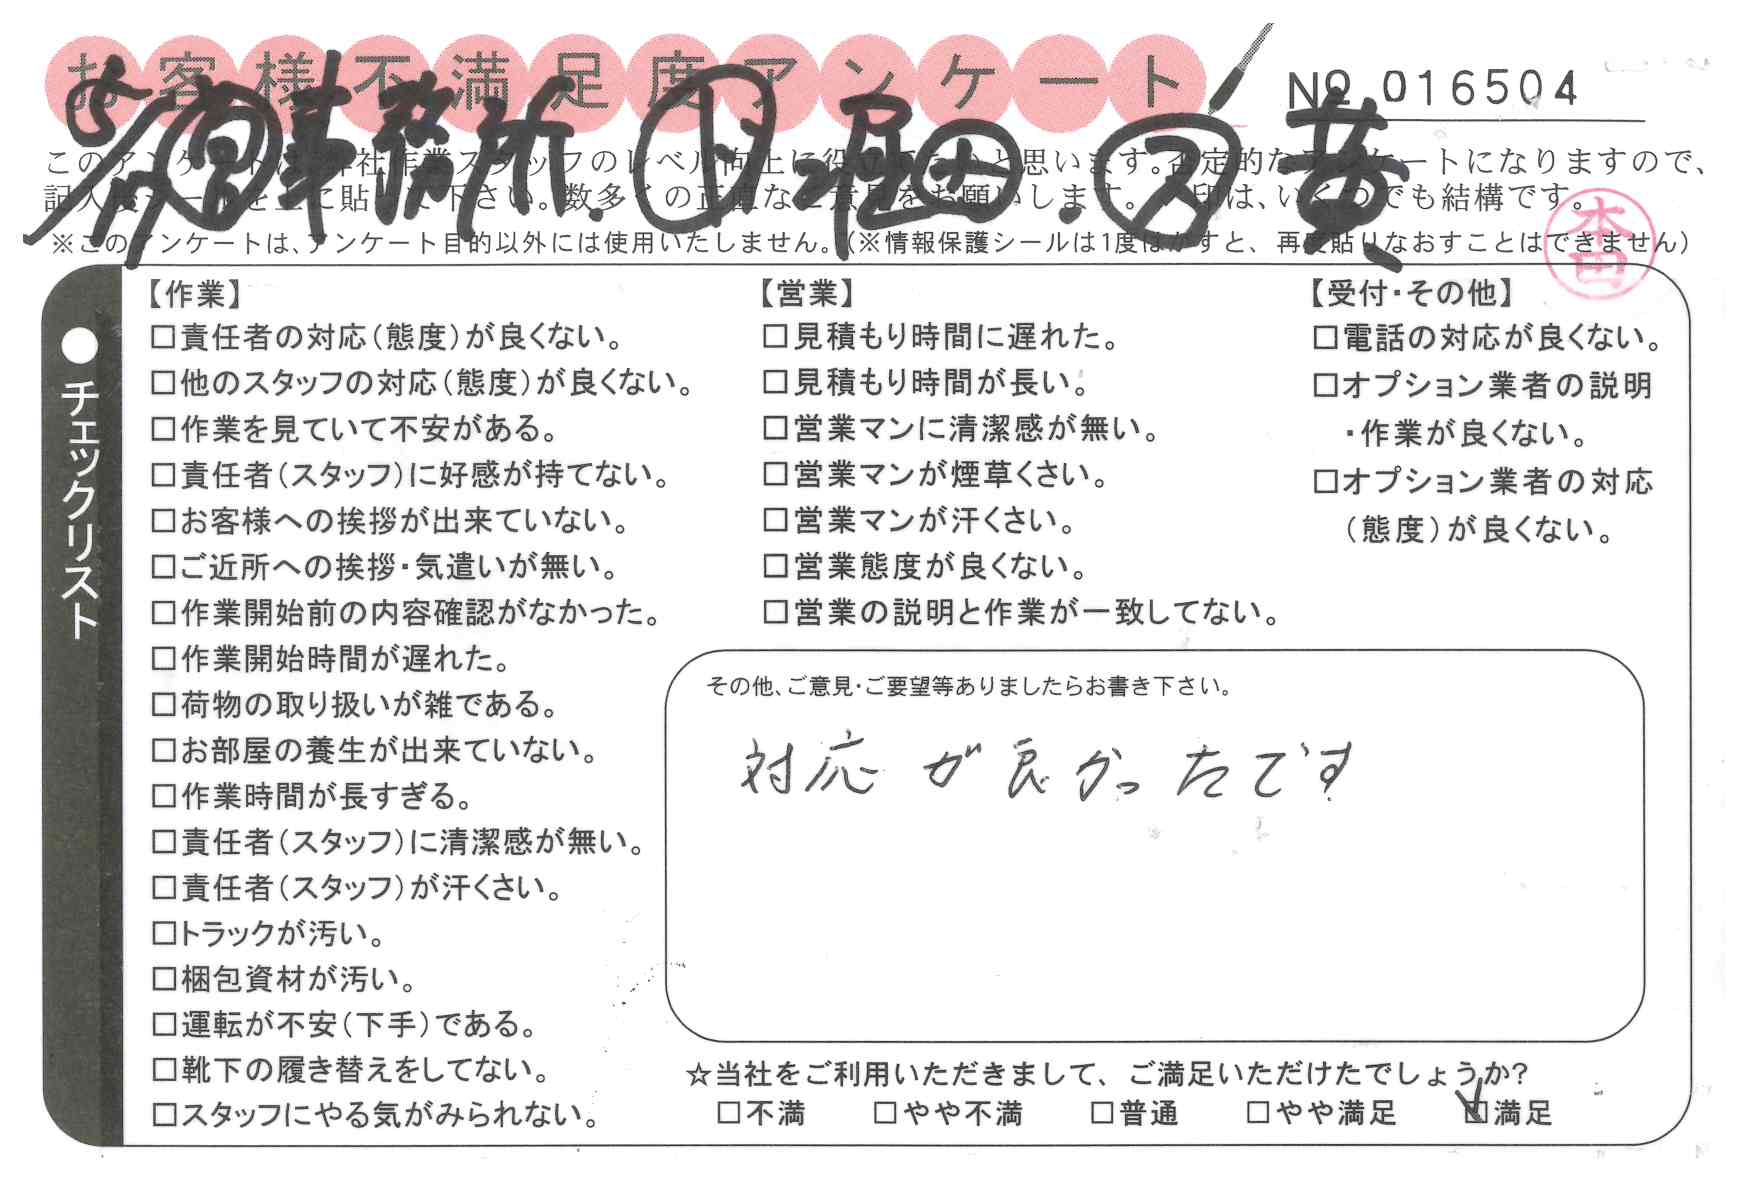 お客様不満足度アンケート
No 016504
5/17 事務所. 堀田. 黄
このアンケートは、弊社作業スタッフのレベル向上に役立てたいと思います。否定的なアンケートになりますので、
記入後シールを上に貼って下さい。数多くの正直なご意見をお願いします。 印は、いくつでも結構です。
※このアンケートは、アンケート目的以外には使用いたしません。(※情報保護シールは1度はがすと、再度貼りなおすことはできません)
本田
●チェックリスト
【作業】
□責任者の対応(態度)が良くない。
□他のスタッフの対応(態度)が良くない。
□作業を見ていて不安がある。
□責任者(スタッフ)に好感が持てない。
□お客様への挨拶が出来ていない。
□ご近所への挨拶・気遣いが無い。
□作業開始前の内容確認がなかった。
□作業開始時間が遅れた。
□荷物の取り扱いが雑である。
□お部屋の養生が出来ていない。
□作業時間が長すぎる。
□責任者(スタッフ)に清潔感が無い。
□責任者(スタッフ)が汗くさい。
□トラックが汚い。
□梱包資材が汚い。
□運転が不安(下手)である。
□靴下の履き替えをしてない。
□スタッフにやる気がみられない。
【営業】
□見積もり時間に遅れた。
□見積もり時間が長い。
□営業マンに清潔感が無い。
□営業マンが煙草くさい。
□営業マンが汗くさい。
□営業態度が良くない。
□営業の説明と作業が一致してない。
【受付・その他】
□電話の対応が良くない。
□オプション業者の説明
・作業が良くない。
□オプション業者の対応
(態度)が良くない。
その他、ご意見・ご要望等ありましたらお書き下さい。
対応が良かったです
☆当社をご利用いただきまして、ご満足いただけたでしょうか?
□不満 □やや不満 □普通 □やや満足 ☑満足